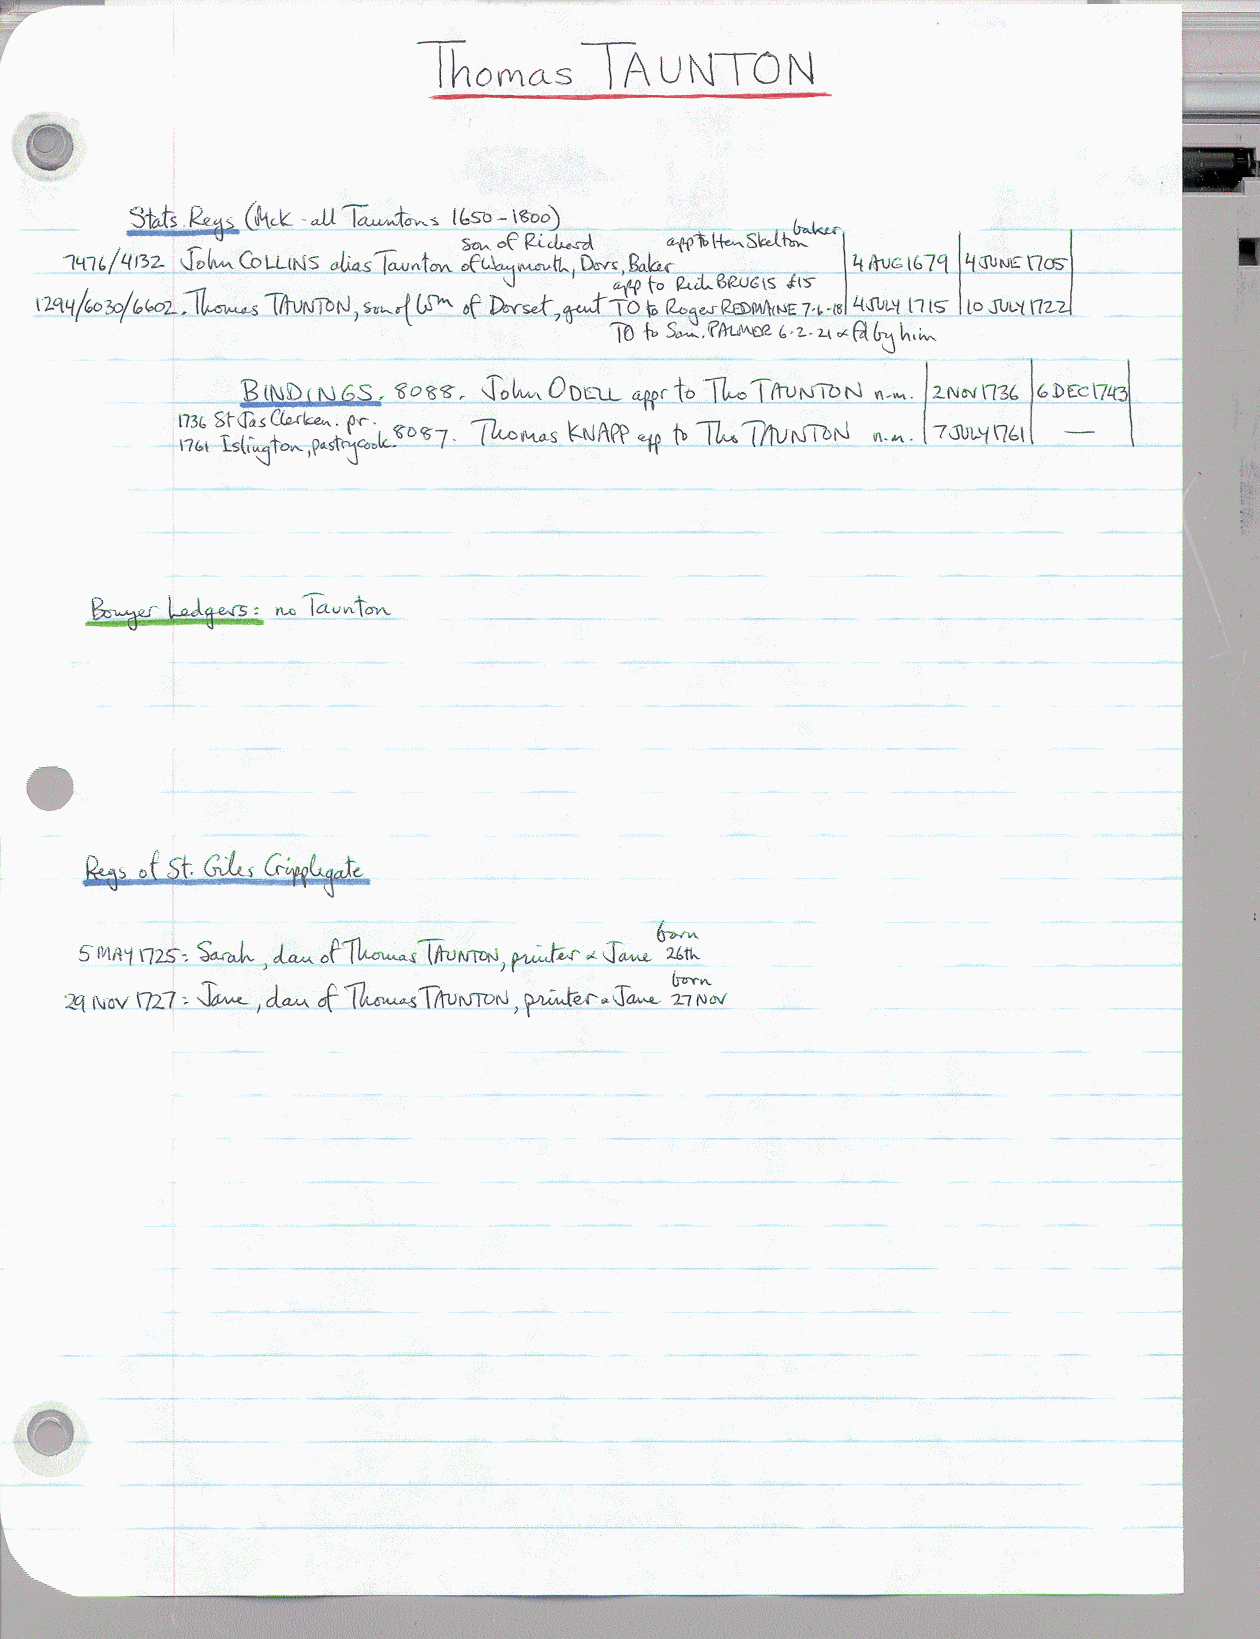 Thomas TAUNTON
Stats Regs (McK - all Tauntons 1650-1800)
son of Richard app to Hen Skelton baker
7476/4132 John COLLINS alias Taunton of Waymouth, Dors, Baker 4 AUG 1679 4 JUNE 1705
app to Rich BRUGIS £15
1294/6030/6602. Thomas TAUNTON, son of Wm of Dorset, gent TO to Roger REDMAINE 7-6-18 4 JULY 1715 10 JULY 1722
TO to Sam. PALMER 6-2-21 & fd by him
BINDINGS. 8088. John ODELL appr to Tho TAUNTON n-m. 2 NOV 1736 6 DEC 1743
1736 St Jas Clerken. pr.
1761 Islington, pastrycook. 8087. Thomas KNAPP app to Tho TAUNTON n.m. 7 JULY 1761 —
Bowyer Ledgers: no Taunton
Regs of St. Giles Cripplegate
born
5 MAY 1725: Sarah, dau of Thomas TAUNTON, printer & Jane 26th
born
29 NOV 1727: Jane, dau of Thomas TAUNTON, printer & Jane 27 Nov